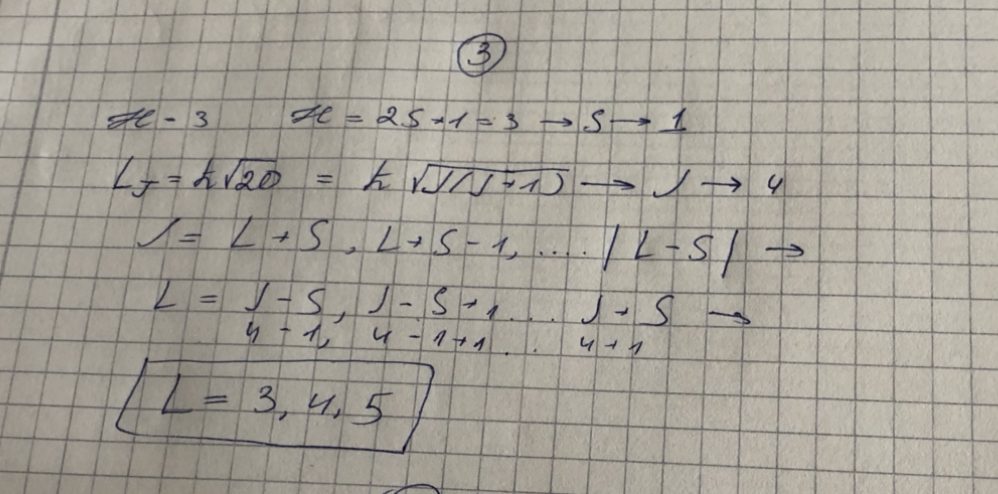 3
ϰ - 3 ϰ = 2S+1 = 3 → S → 1
L_J = ħ√20 = ħ √J(J+1) → J → 4
J = L + S, L + S - 1, .... |L - S| →
L = J - S, J - S + 1 ... J + S →
4 - 1, 4 - 1 + 1 .. 4 + 1
L = 3, 4, 5